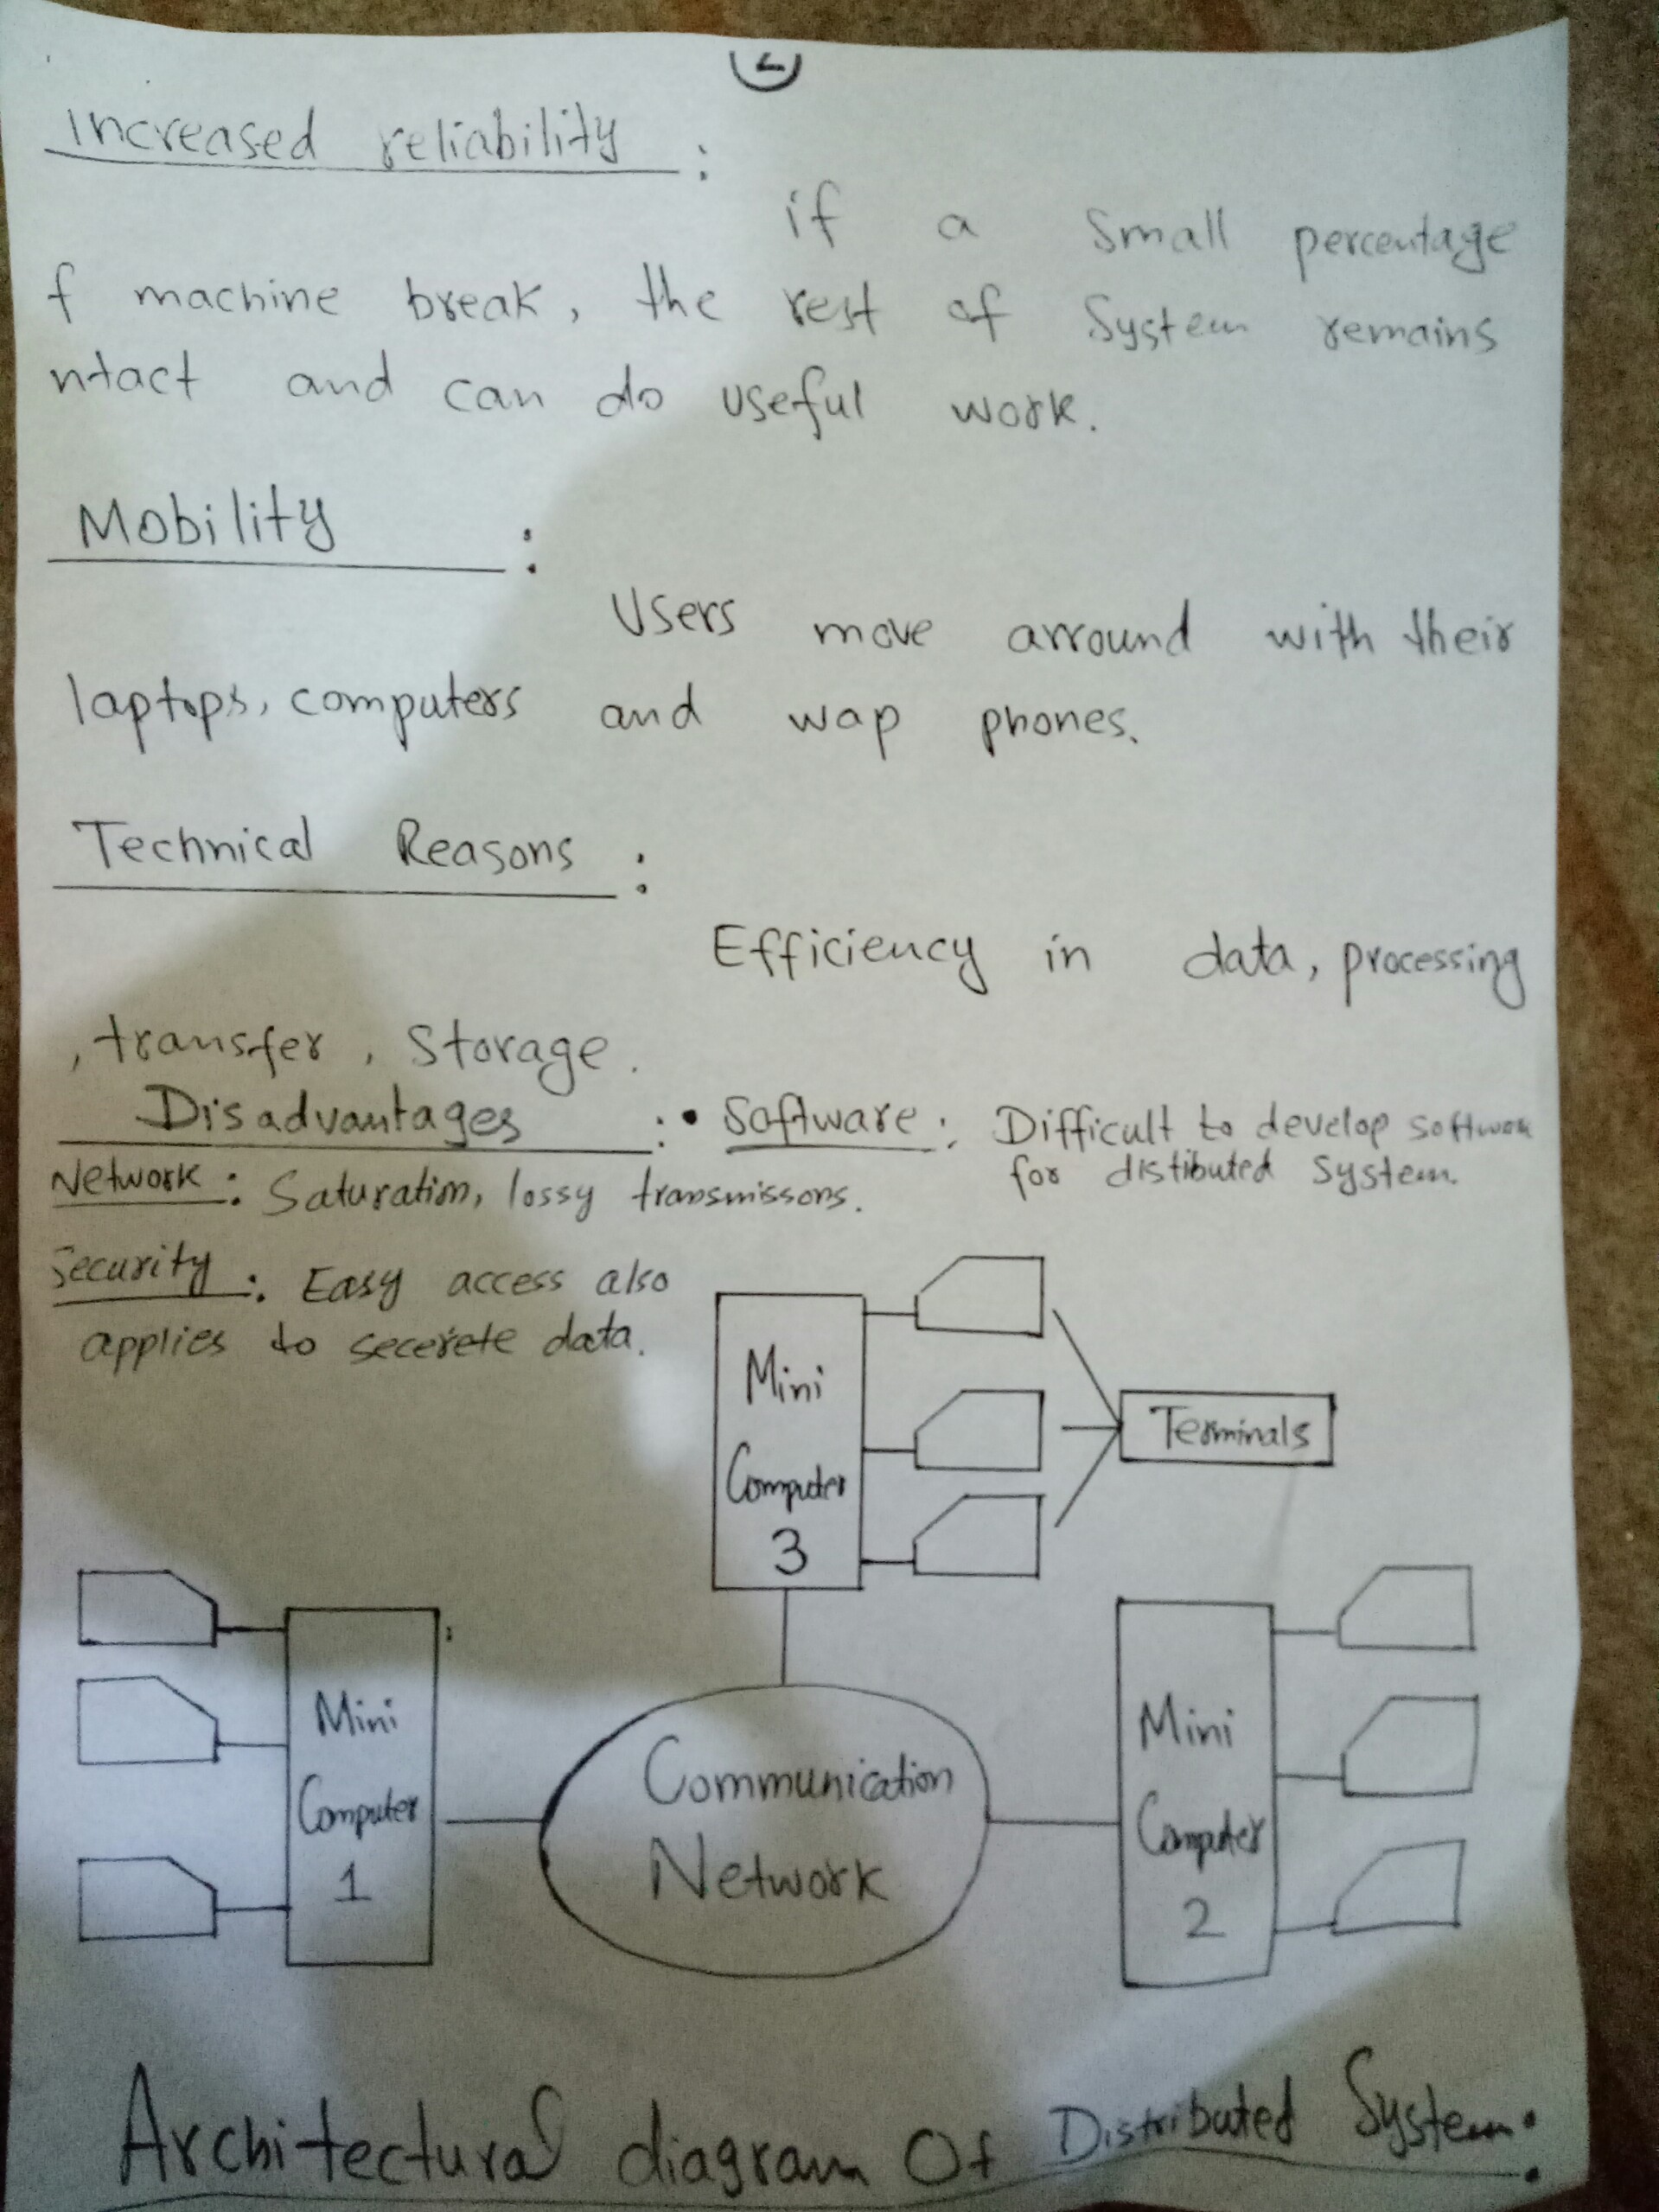 2
Increased reliability :
if a small percentage
f machine break, the rest of System remains
ntact and can do useful work.
Mobility :
Users move arround with their
laptops, computers and wap phones.
Technical Reasons :
Efficiency in data, processing
, transfer, storage.
Disadvantages : • Software : Difficult to develop software
for distibuted System.
Network : Saturation, lossy transmissons.
Security : Easy access also
applies to secerete data.
Mini
Computer
3
Terminals
Mini
Computer
1
Communication
Network
Mini
Computer
2
Architectural diagram Of Distributed System: